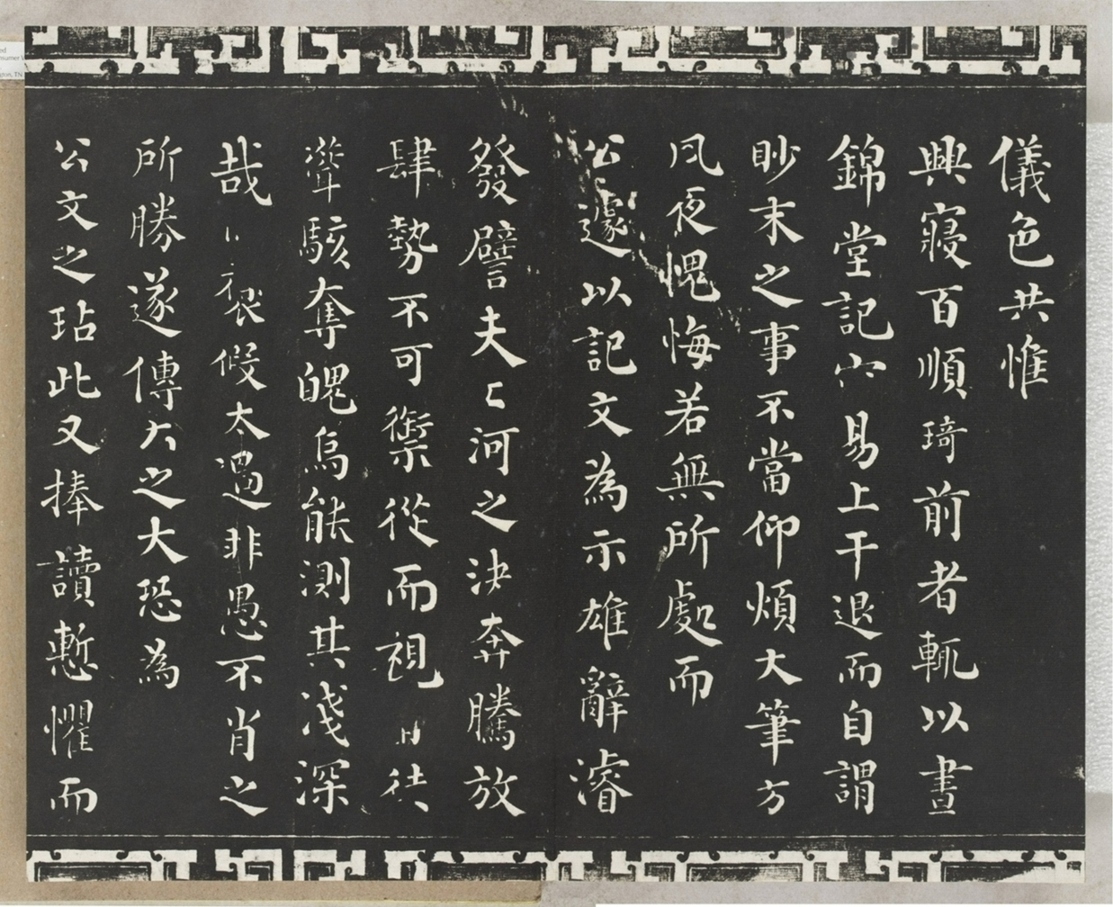 儀色共惟
興寢百順琦前者輒以晝
錦堂記易上干退而自謂
眇末之事不當仰煩大筆方
夙夜愧悔若無所處而
公遽以記文為示雄辭濬
發譬夫河之決奔騰放
肆勢不可禦從而視徒
聳駭奪魄烏能測其淺深
哉假太過非愚不肖之
所勝遂傳之大恐為
公文之玷此又捧讀慙懼而